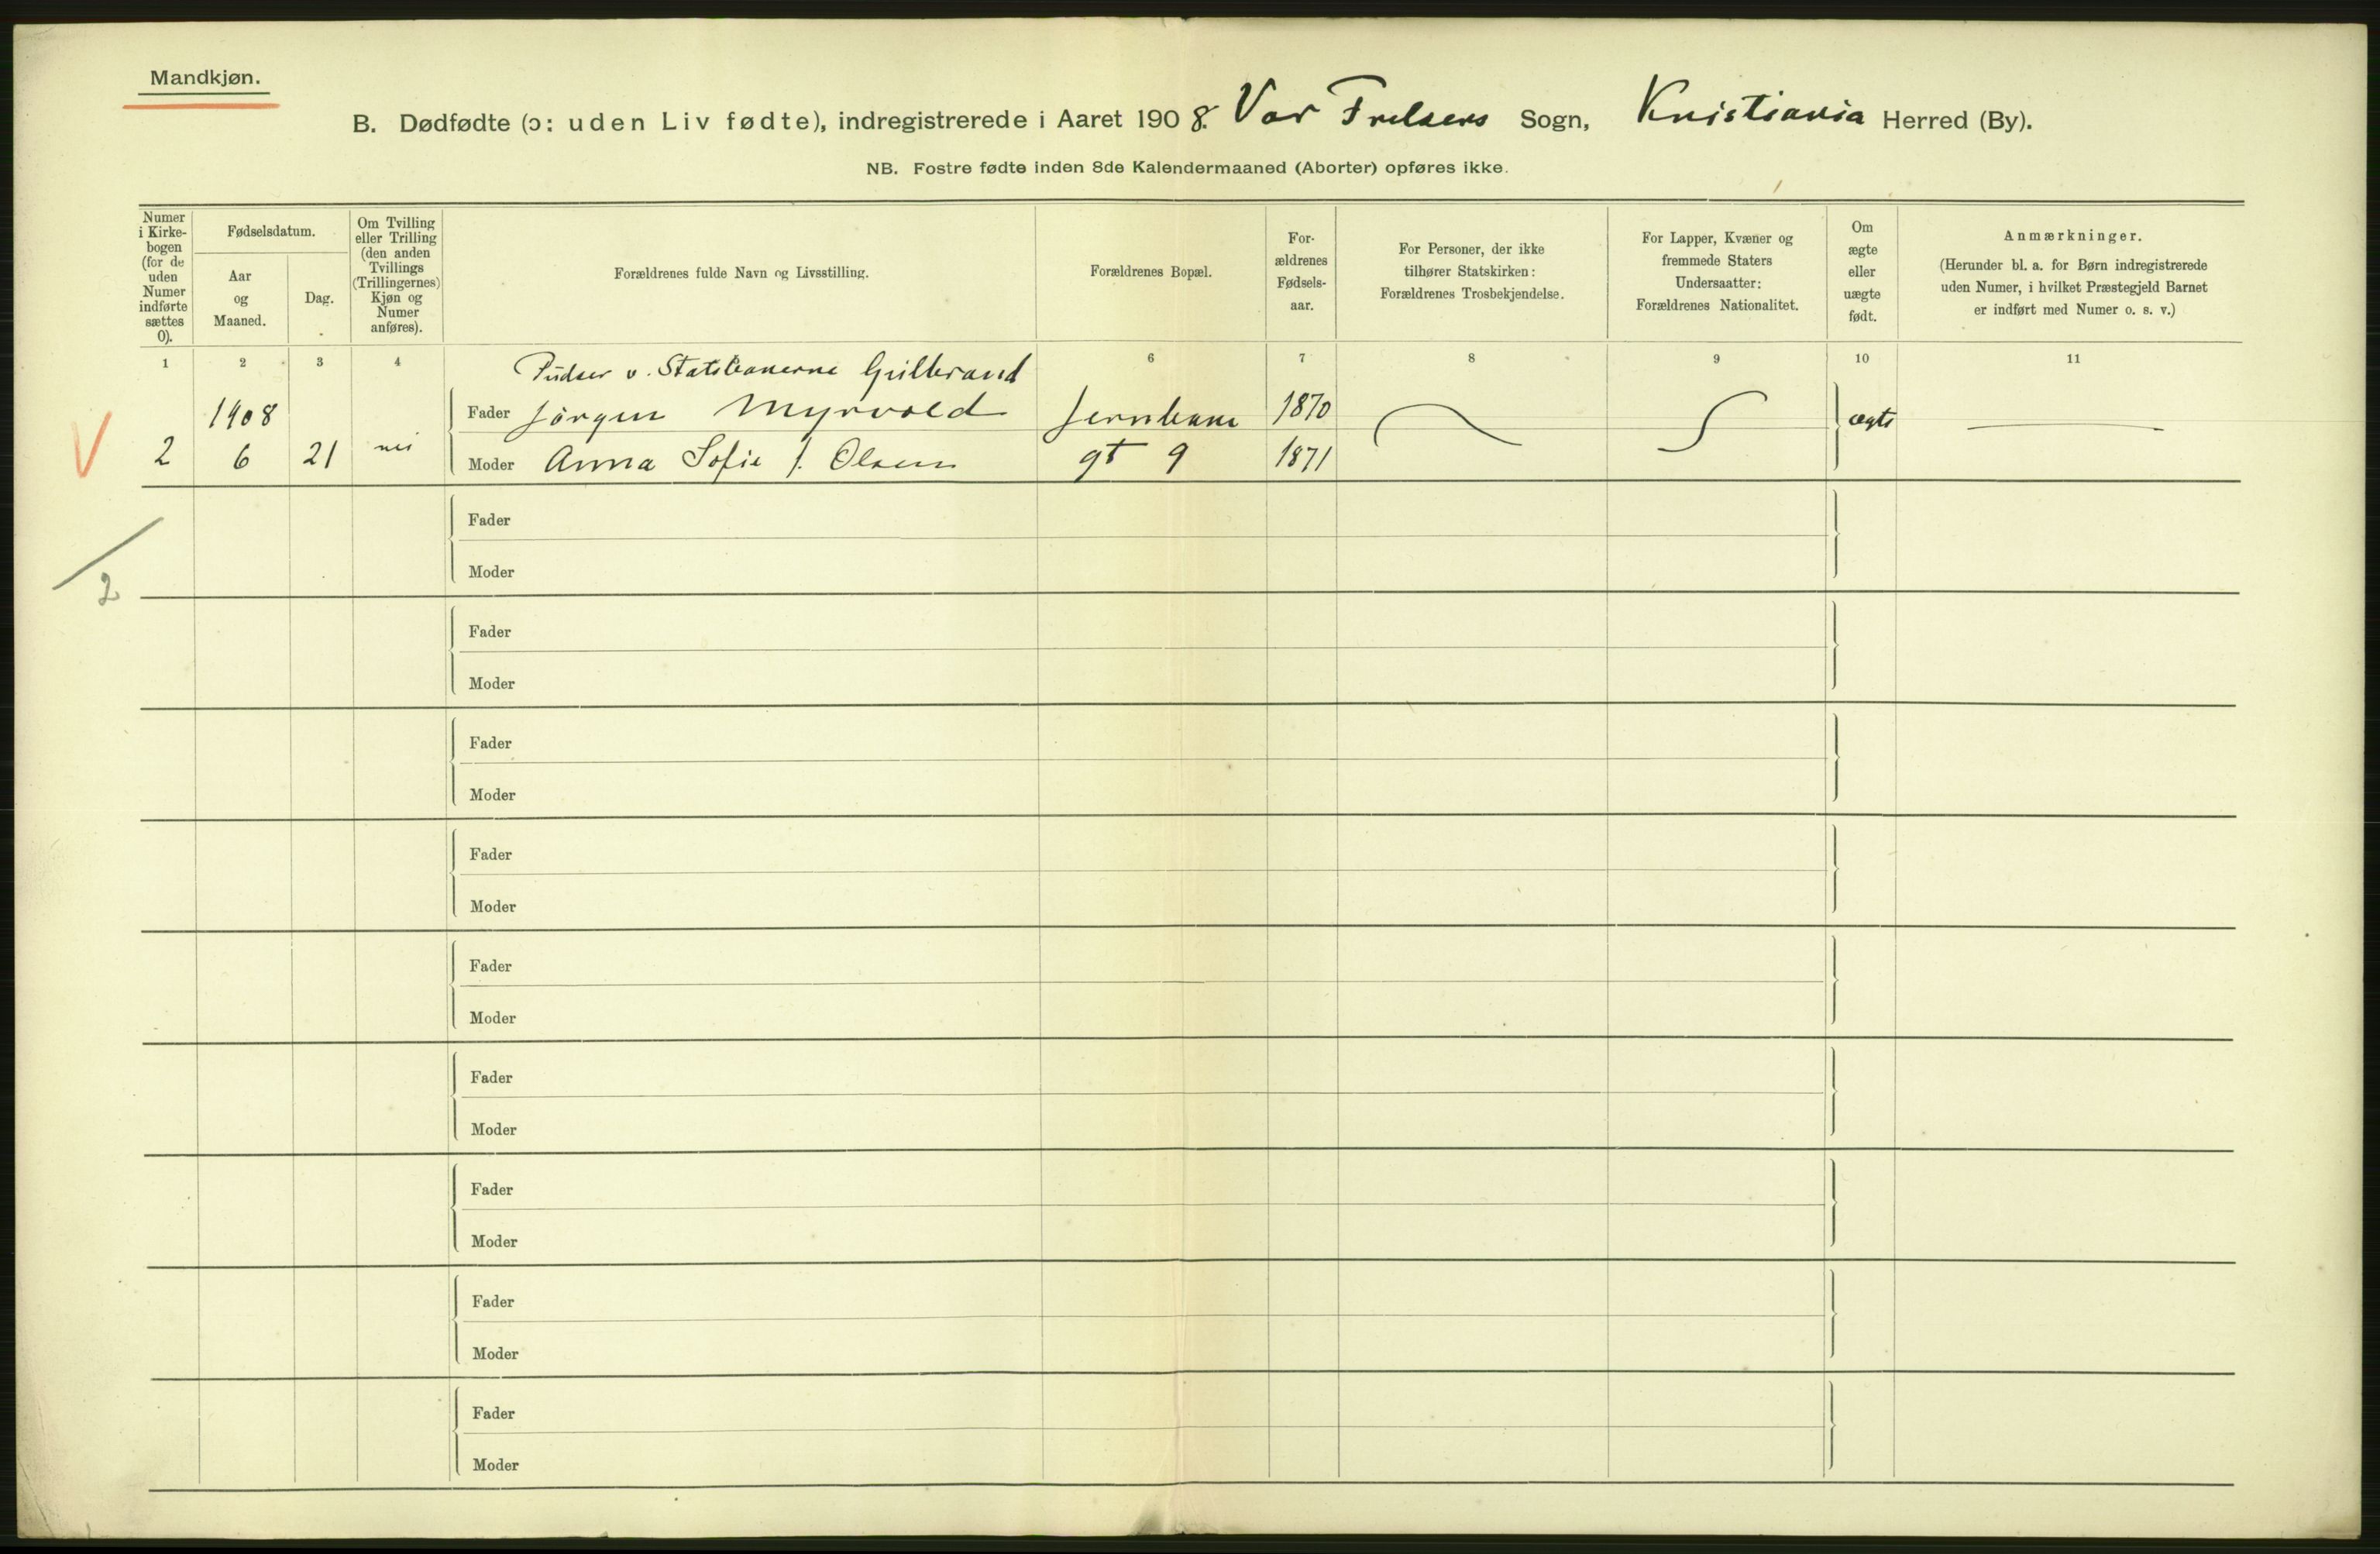 Mandkjøn.
B. Dødfødte (ɔ: uden Liv fødte), indregistrerede i Aaret 1908. Vor Frelsers Sogn, Kristiania Herred (By).
NB. Fostre fødte inden 8de Kalendermaaned (Aborter) opføres ikke.
Numer
i Kirke-
bogen
(for de
uden
Numer
indførte
sættes
0).
Fødselsdatum.
Aar
og
Maaned.
Dag.
Om Tvilling
eller Trilling
(den anden
Tvillings
(Trillingernes)
Kjøn og
Numer
anføres).
Forældrenes fulde Navn og Livsstilling.
Forældrenes Bopæl.
For-
ældrenes
Fødsels-
aar.
For Personer, der ikke
tilhører Statskirken:
Forældrenes Trosbekjendelse.
For Lapper, Kvæner og
fremmede Staters
Undersaatter:
Forældrenes Nationalitet.
Om
ægte
eller
uægte
født.
Anmærkninger.
(Herunder bl. a. for Børn indregistrerede
uden Numer, i hvilket Præstegjeld Barnet
er indført med Numer o. s. v.)
1 2 3 4 6 7 8 9 10 11
Pudser v. Statsbanerne Gulbrand
1908 Fader Jörgen Myrvold Jernbane 1870 ægte
2 6 21 nei Moder Anna Sofie f. Olsen gt 9 1871
Fader
2
Moder
Fader
Moder
Fader
Moder
Fader
Moder
Fader
Moder
Fader
Moder
Fader
Moder
Fader
Moder
Fader
Moder